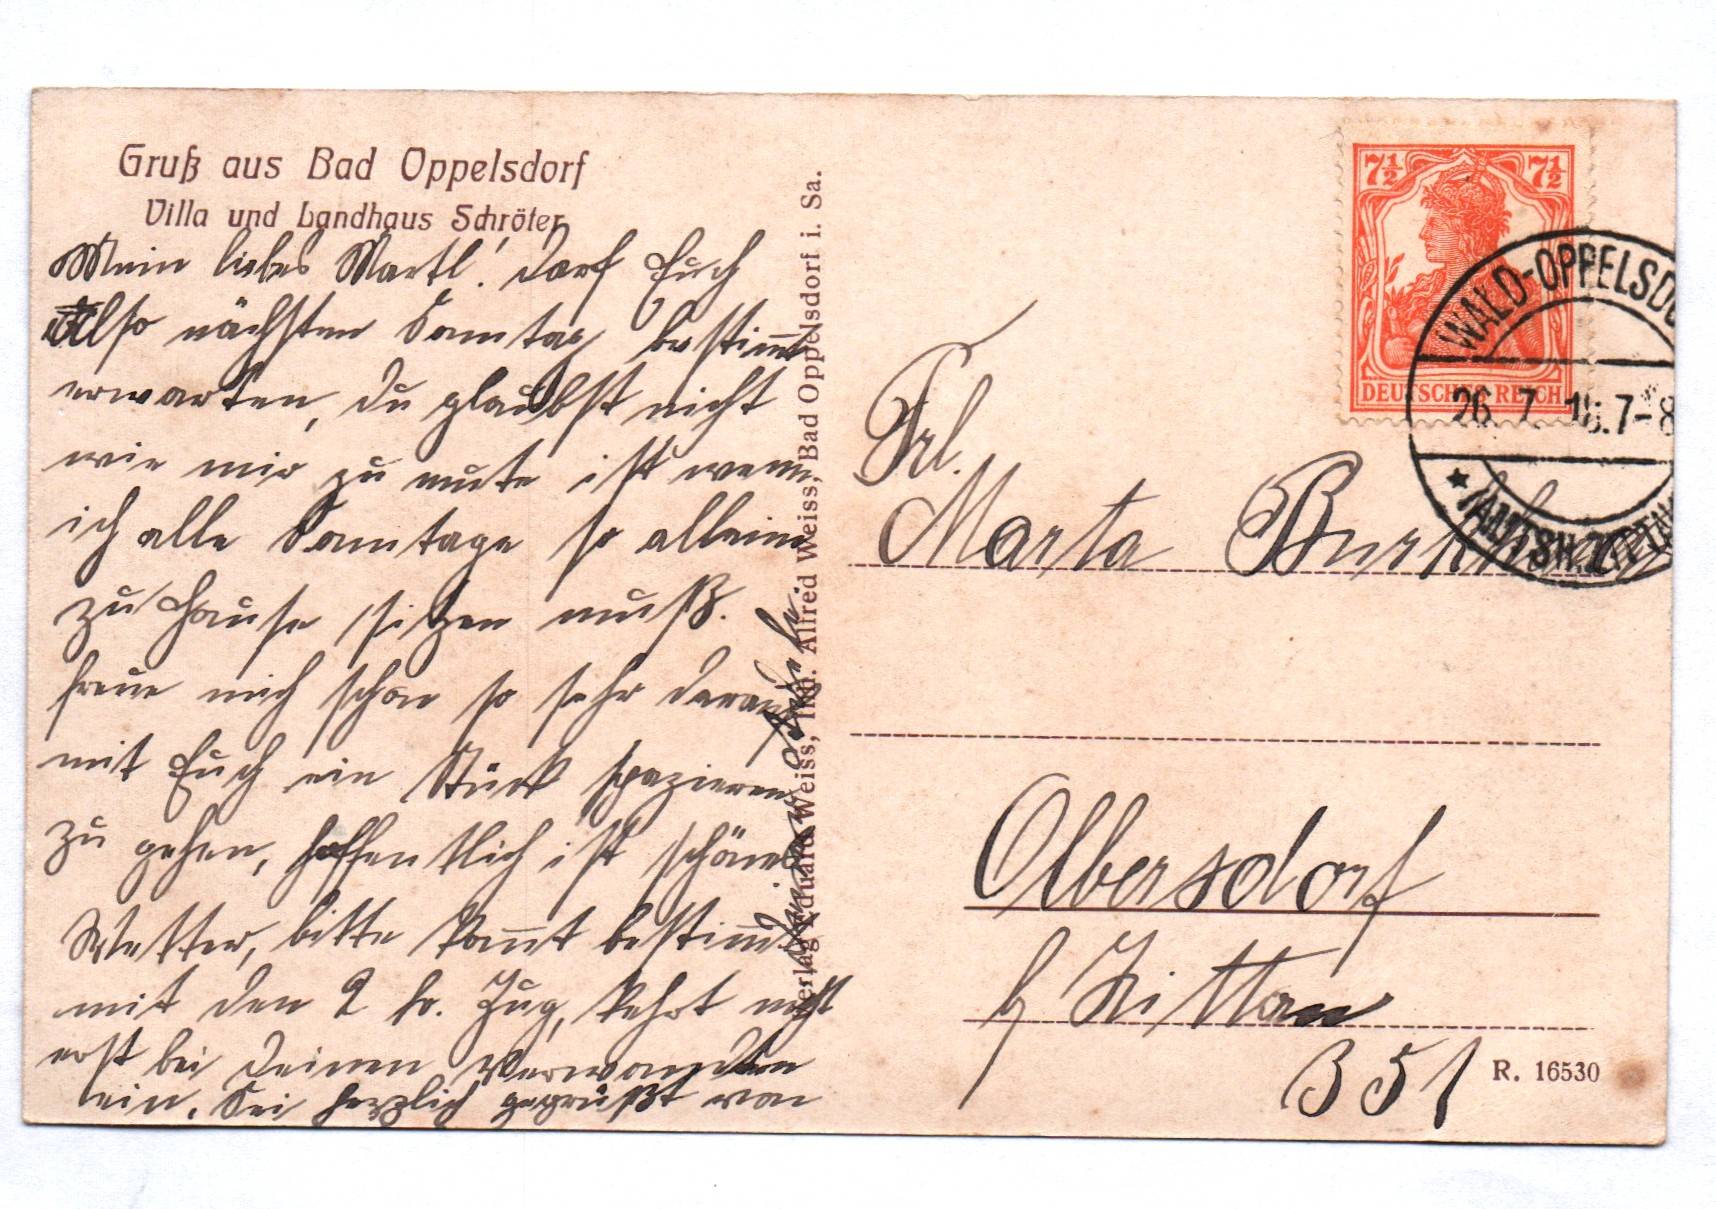 Gruß aus Bad Oppelsdorf
Villa und Landhaus Schröter
Mein liebes Martl! Darf Euch
also nächsten Sonntag bestimmt
erwarten, Du glaubst nicht
wie mir zu mute ist wenn
ich alle Sonntage so allein
zu Hause sitzen muß.
freue mich schon so sehr darauf
mit Euch ein Stück spazieren
zu gehen, hoffentlich ist schönes
Wetter, bitte kommt bestimmt
mit den 2 hr. Zug, kehrt nicht
erst bei Deinen Verwandten
ein. Sei herzlich gegrüßt von
Verlag Eduard Weiss, Inh. Alfred Weiss, Bad Oppelsdorf i. Sa.
7½ 7½
DEUTSCHES REICH
WALD-OPPELSDO
26. 7. 18. 7-8
* (AMTSH. ZITTAU
Frl.
Marta
Olbersdorf
b/ Zittau
351
R. 16530